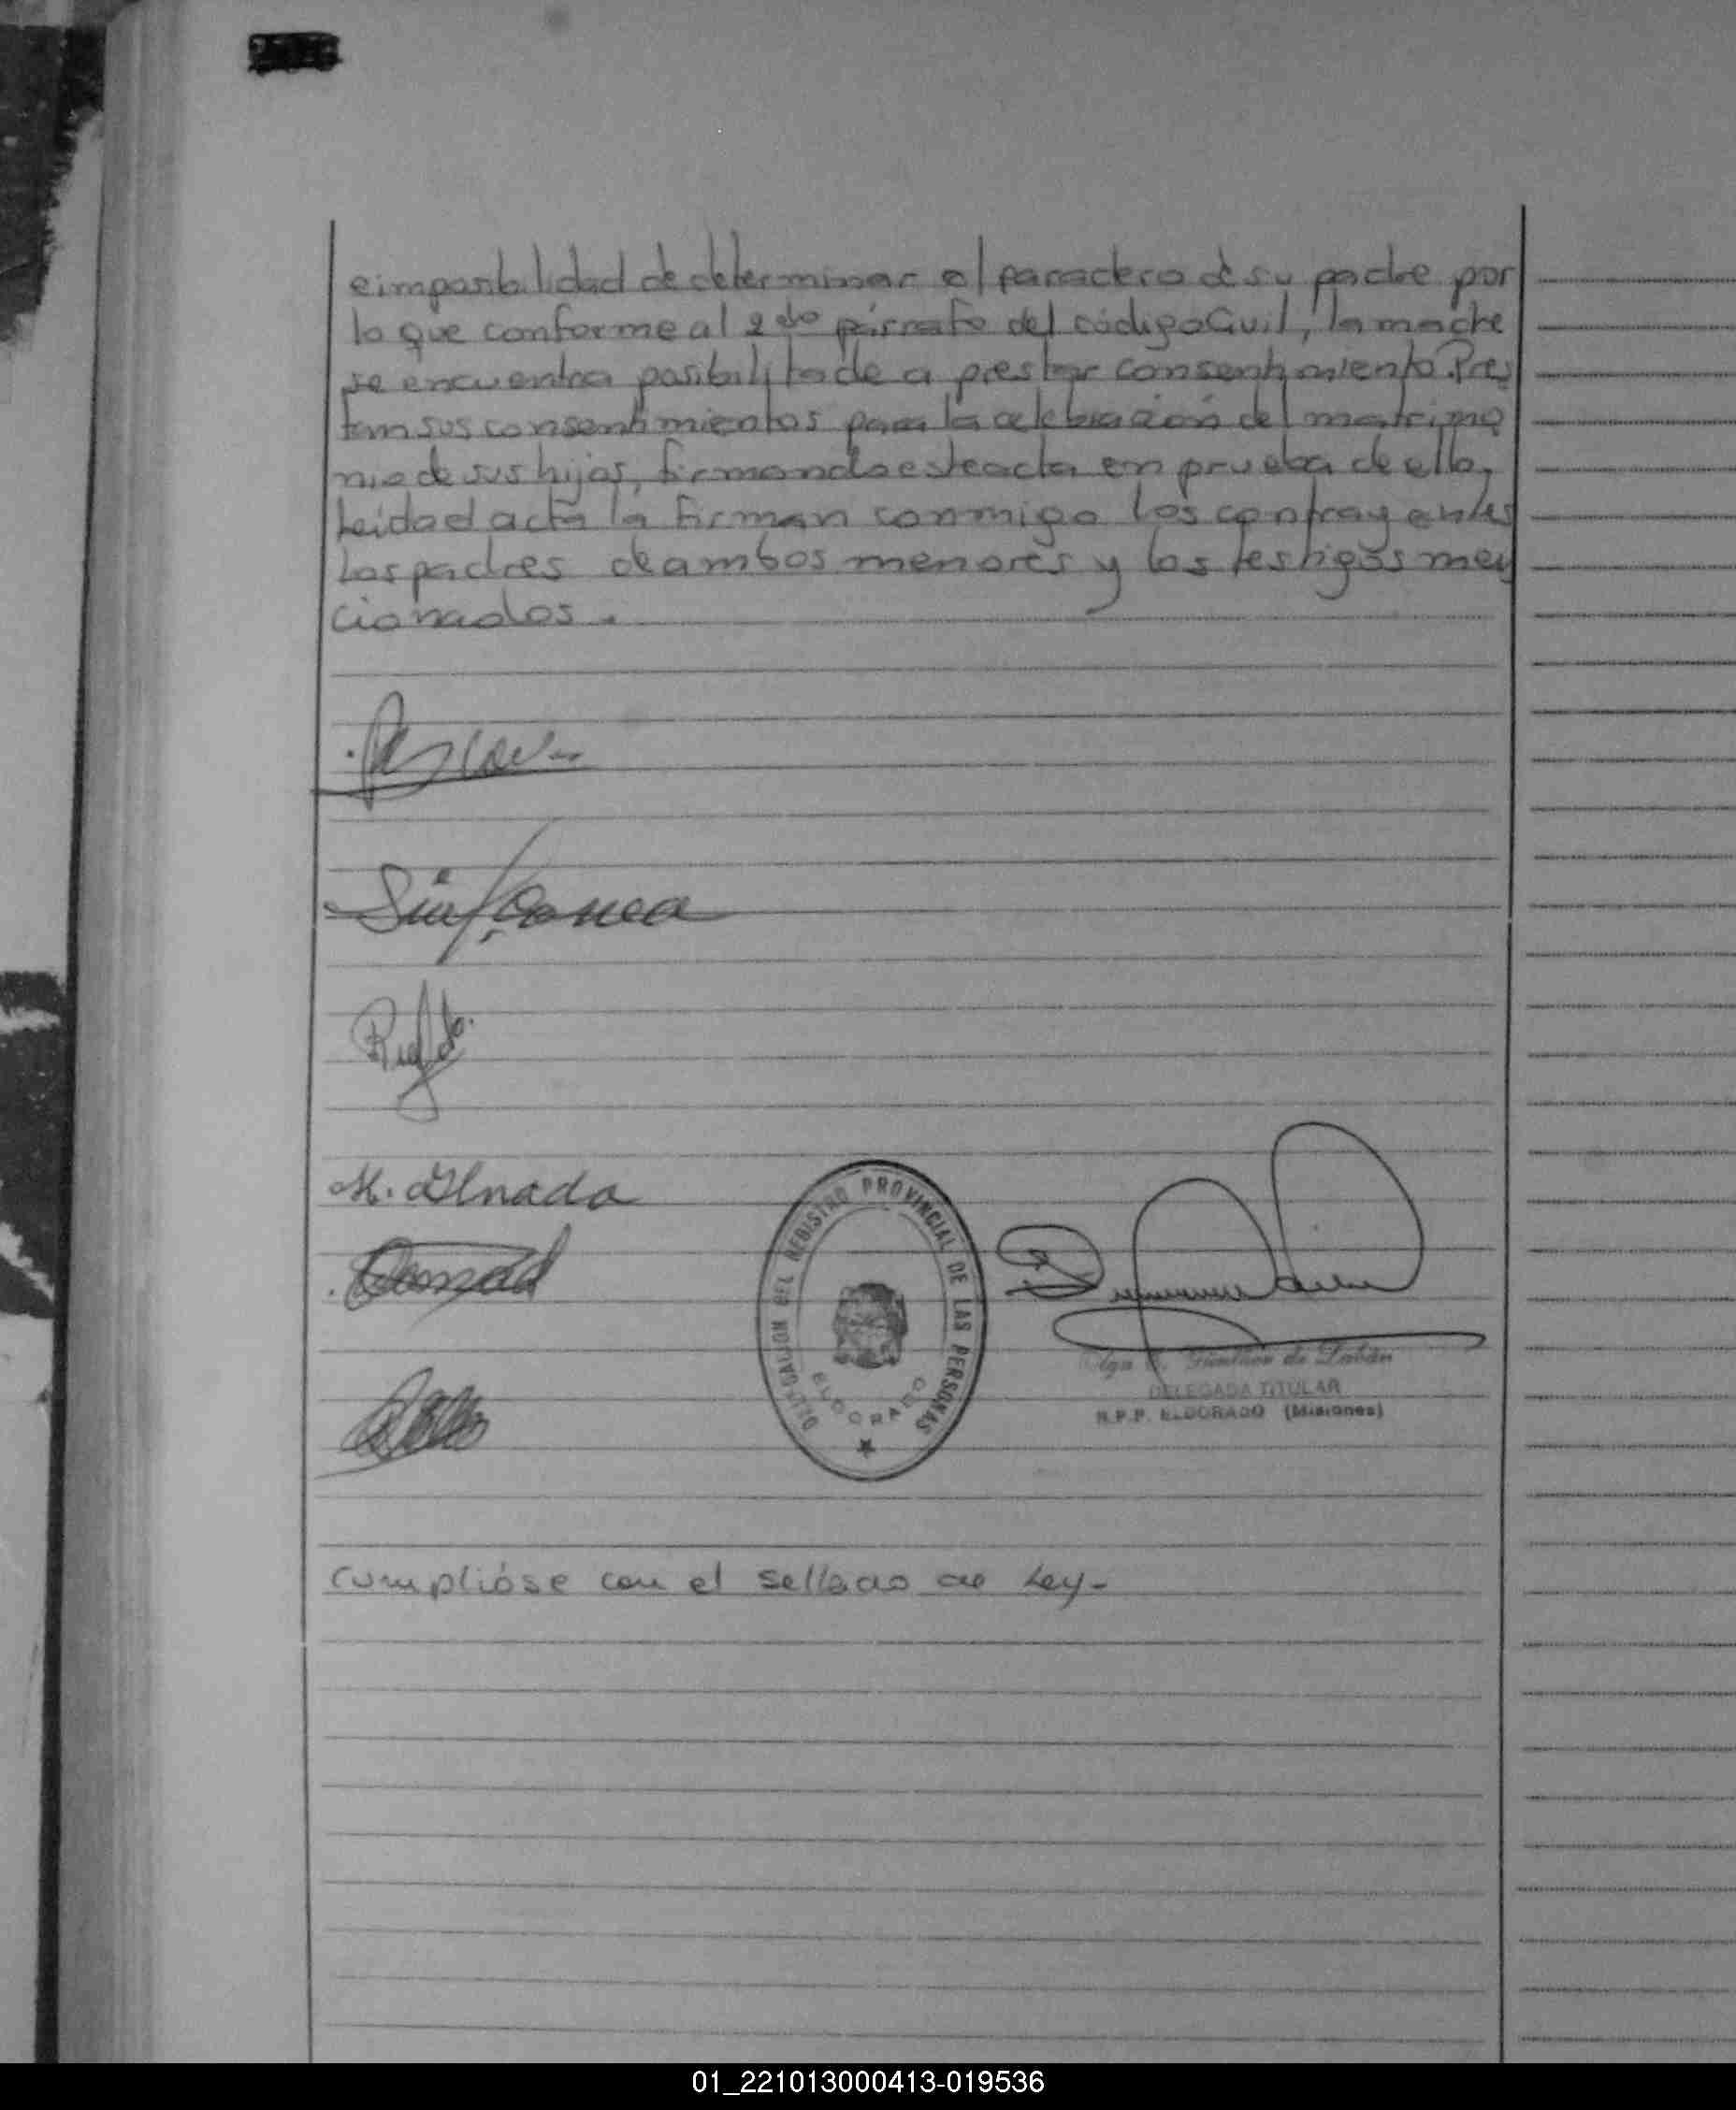 e imposibilidad de determinar el paradero de su padre por
lo que conforme al 2do párrafo del código Civil, la madre
se encuentra posibilitade a prestar consentimiento. Pres
tan sus consentimientos para la celebración del matrimo
nio de sus hijos, firmando este acta en prueba de ello,
Leida el acta la firman conmigo los contrayentes
Los padres de ambos menores y los testigos men
cionados.
M.
DELEGACION DEL REGISTRO PROVINCIAL DE LAS PERSONAS
ELDORADO
Olga de
DELEGADA TITULAR
R.P.P. ELDORADO (Misiones)
Cumplióse con el sellado de Ley-
01_221013000413-019536